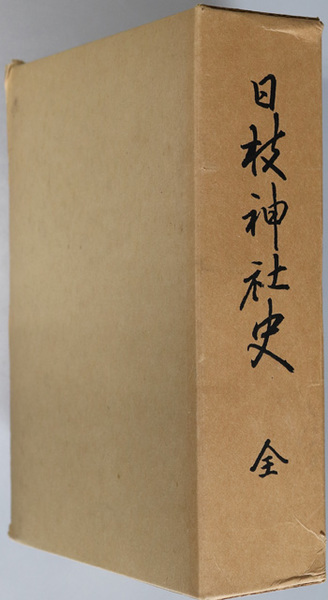 日枝神社史
全